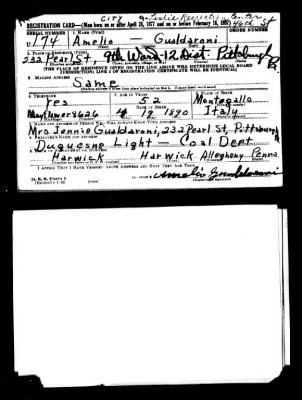 CITY
REGISTRATION CARD—(Men born on or after April 28, 1877 and on or before February 16, 1897)
46th St
SERIAL NUMBER 1. NAME (Print) ORDER NUMBER
U 194 Amelio Gualdaroni
232 Pearl St, 9th Ward-12 Dist. Pittsburgh Pa
(THE PLACE OF RESIDENCE GIVEN ON THE LINE ABOVE WILL DETERMINE LOCAL BOARD
JURISDICTION; LINE 2 OF REGISTRATION CERTIFICATE WILL BE IDENTICAL)
3. MAILING ADDRESS
Same
4. TELEPHONE 5. AGE IN YEARS 6. PLACE OF BIRTH
Yes 52 Montegallo
Mayflower 8626 4 19 1890 Italy
7. NAME AND ADDRESS OF PERSON WHO WILL ALWAYS KNOW YOUR ADDRESS
Mrs Jennie Gualdaroni, 232 Pearl St, Pittsburgh
8. EMPLOYER'S NAME AND ADDRESS
Duquesne Light — Coal Dept
Harwick Harwick Allegheny Penna
I AFFIRM THAT I HAVE VERIFIED ABOVE ANSWERS AND THAT THEY ARE TRUE.
Amelio Gualdaroni